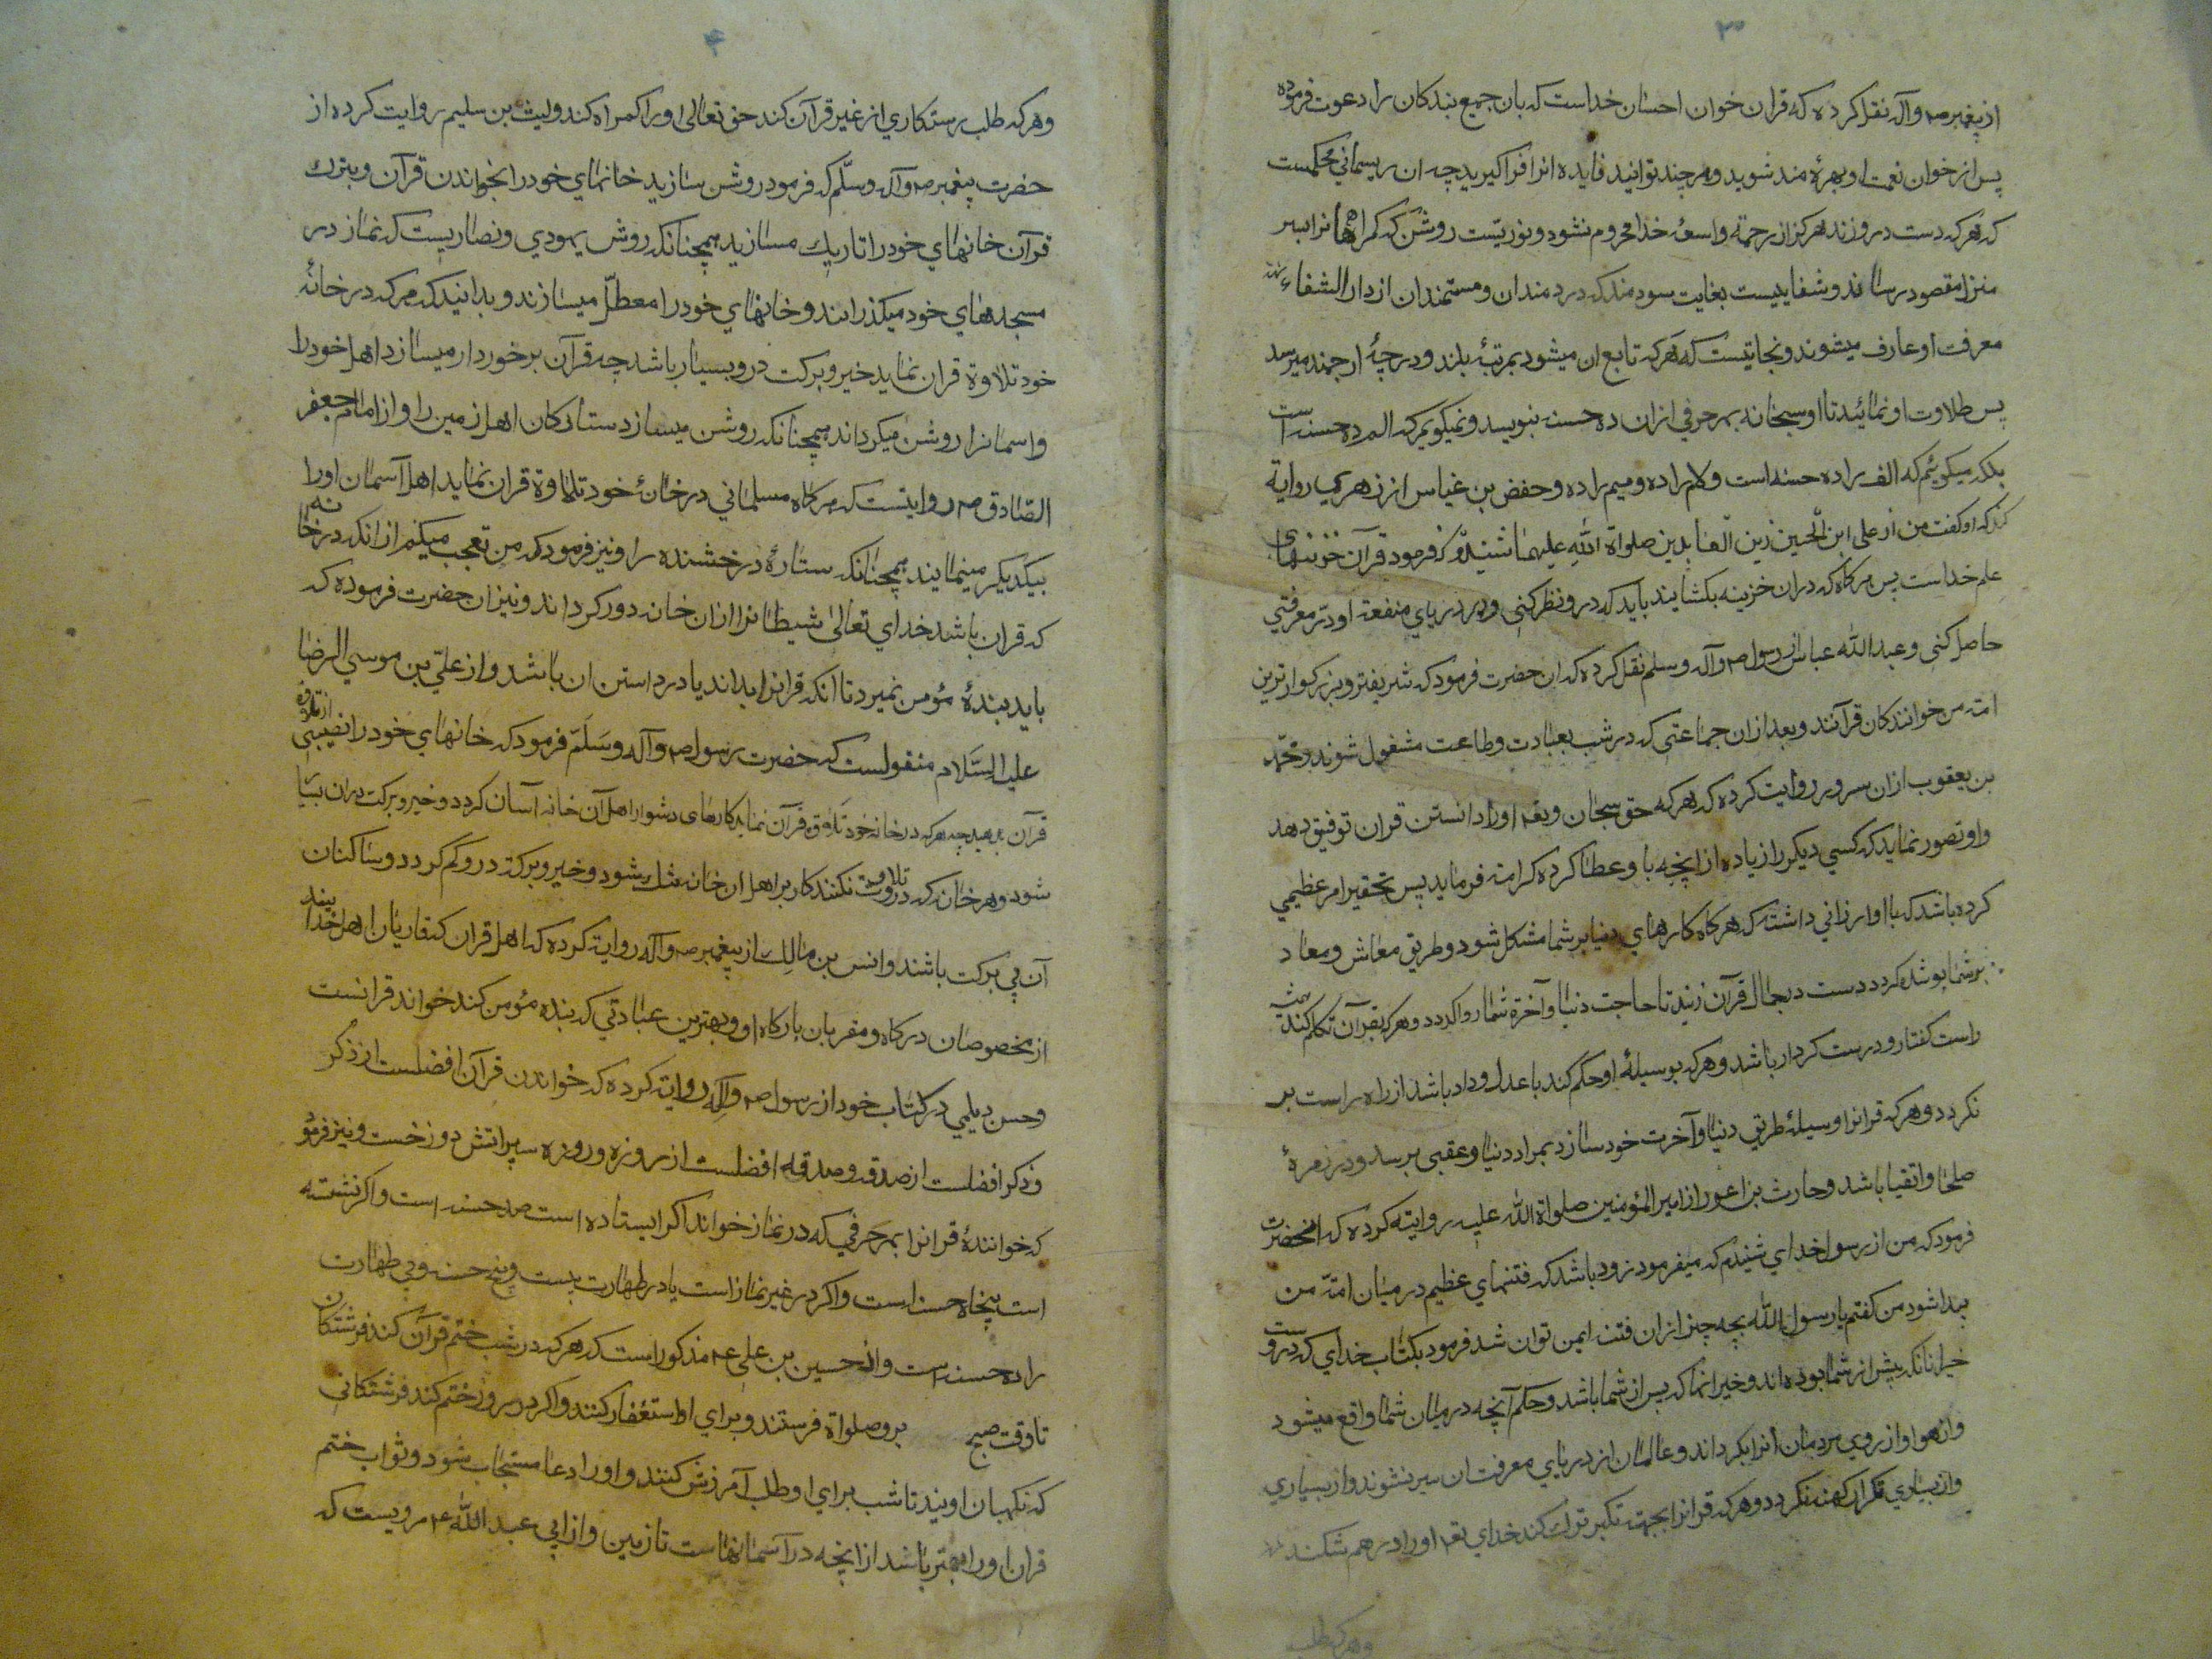 ۳
از پیغمبر ص وآله نقل کرده که قران خوان احسان خداست که بان جمیع بندکان را دعوت فرموده
پس از خوان نعمت او بهرهٔ مند شوید و هر چند توانید فایده ازا فراکیرید چه ان ریسمانی محکمست
که هر که دست درو زند هرکز از رحمة واسعهٔ خدا محروم نشود و نوریّست روشن که کمراهانرا بسر
منزل مقصود رساند و شفاییست بغایت سودمند که دردمندان و مستمندان از دار الشفاء
معرفت او عارف میشوند و نجاتیست که هر که تابع ان میشود بمرتبهٔ بلند و درجهٔ ارجمند میرسد
پس طلاوت او نمائید تا او سبحانه بهر حرفی ازان ده حسنه بنویسد و نمیکویم که الم ده حسنه است
بلکه میکوئیم که الف را ده حسنه است و لام را ده و میم را ده و حفض بن غیاس از زهری روایة
کند که او کفت من از علی ابن الحسین زین العابدین صلواة الله علیهما شنیدم که فرمود قرآن خزینهای
علم خداست پس هر کاه که دران خزینه بکشایند باید که درو نظر کنی و در دریای منفعة او درّ معرفتی
حاصل کنی و عبد الله عباس از رسول ص وآله وسلم نقل کرده که ان حضرت فرمود که شریفتر و بزرکوارترین
امة من خوانندکان قرآنند و بعد ازان جماعتی که در شب بعبادت و طاعت مشغول شوند و محمّد
بن یعقوب ازان سرور روایت کرده که هر که حق سبحان و تعه اورا دانستن قران توفیق دهد
و او تصور نماید که کسی دیکر را زیاده از انچه باو عطا کرده کرامة فرماید پس تحقیر امر عظیمی
کرده باشد که باو ارزانی داشته که هر کاه کارهای دنیا بر شما مشکل شود و طریق معاش و معاد
بر شما پوشده کردد دست در حبال قرآن زنید تا حاجت دنیا و آخرة شما روا کردد و هر که بقرآن تکلم کند
راست کفتار و درست کردار باشد و هر که بوسیلهٔ او حکم کند با عدل و داد باشد از راه راست بر
نکردد و هر که قرانرا وسیلهٔ طریق دنیا و آخرت خود سازد بمراد دنیا و عقبی برسد و در زمرهٔ
صلحا و اتقیا باشد و حارث بن اعور از امیر المؤمنین صلواة الله علیه روایته کرده که انحضرت
فرمود که من از رسول خدای شنیدم که میفرمود زود باشد که فتنهای عظیم در میان امّة من
پیدا شود من کفتم یا رسول الله بچه چیز ازان فتنه ایمن توان شد فرمود بکتاب خدای که دروست
خبر انانکه پیش از شما بوده اند و خبر انها که پس از شما باشد و حکم آنچه در میان شما واقع میشود
و از هوا و از روی مردمان انرا بکرداند و عالمان از دریای معرفت ان سیر نشوند و از بسیاری
و از بسیاری تکرار کهنه نکردد و هر که قرانرا بجهت تکبر ترک کند خدای تعه اورا درهم شکند
وهر که طلب
۴
وهر که طلب رستکاری از غیر قرآن کند حق تعالی اورا کمراه کند و لیث بن سلیم روایت کرده از
حضرت پیغمبر ص وآله وسلّم که فرمود روشن سازید خانهای خود را بخواندن قرآن و بترک
قرآن خانهای خود را تاریک مسازید همچنانکه روش یهودی و نصاریست که نماز در
مسجدهای خود میکذرانند و خانهای خود را معطلّ میسازند و بدانید که هر که در خانهٔ
خود تلاوة قران نماید خیر و برکت درو بسیار باشد چه قرآن برخوردار میسازد اهل خود را
و اسمانرا روشن میکرداند همچنانکه روشن میسازد ستارکان اهل زمین را و از امام جعفر
الصّادق ص روایتست که هر کاه مسلمانی در خانهٔ خود تلاوة قران نماید اهل آسمان اورا
بیکدیکر مینمایند همچنانکه ستارهٔ درخشنده را و نیز فرمود که من تعجب میکنم از انکه در خانه
که قران باشد خدای تعالی شیطانرا ازان خانه دور کرداند و نیز ان حضرت فرموده که
باید بندهٔ مؤمن نمیرد تا انکه قرانرا بداند یا در داستن ان باشد و از علیّ بن موسی الرضا
علیه السَّلام منقولست که حضرت رسول ص وآله وسَلَّم فرمود که خانهای خود را نصیبی از تلاوة
قرآن بدهید چه هر که در خانه خود تلاوة قرآن نماید کارهای دشوار اهل آن خانه آسان کردد و خیر و برکت دران بسیا
شود و هر خان که دروت تلاوت نکنند کار بر اهل ان خانه مشکل شود و خیر و برکة درو کم کردد و ساکنان
آن بی برکت باشند و انس بن مالِک از پیغمبر ص وآله روایة کرده که اهل قران که قاریان اهل خدا یند
از مخصوصان درکاه و مقربان بارکاه او و بهترین عبادتی که بنده مؤمن کند خواند قرانست
و حسن دیلمی در کتاب خود از رسول ص وآلِه روایة کرده که خواندن قرآن افضلست از ذکر
و ذکر افضلست از صدقه و صدقه افضلست از روزه و روزه سپر اتش دوزخست و نیز فرمو
که خوانندهٔ قرانرا بهر حرفی که در نماز خواند اکر ایستاده است صد حسنه است و اکر نشسته
است پنجاه حسنه است و اکر در غیر نماز است یا در طهارت بیست و پنج حسنه و بی طهارت
را ده حسنه است و از حسین بن علی ع مذکور است که هر که در شب ختم قرآن کند فرشتکان
تا وقت صبح بر و صلواة فرستند و برای او استغفار کنند و اکر در روز ختم کند فرشتکانی
که نکهبان اویند تا شب برای او طلب آمرزش کنند و اورا دعا مستجاب شود و ثواب ختم
قران اورا بهتر باشد از انچه در آسمانهاست تا زمین و از ابی عبد الله ع مرویست که